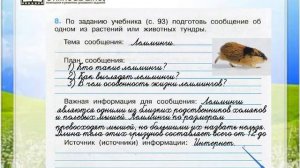 8. По заданию учебника (с. 93) подготовь сообщение об
одном из растений или животных тундры.
Тема сообщения: Лемминги
План сообщения:
1) Кто такие лемминги?
2) Как выглядят лемминги?
3) В чем особенность жизни леммингов?
Важная информация для сообщения: Лемминги
являются одними из близких родственников хомяков
и полевых мышей. Лемминги по размерам
превосходят мышей, но большими их назвать нельзя.
Длина тела этих грызунов составляет всего от 12 до
Источник (источники) информации: Интернет.